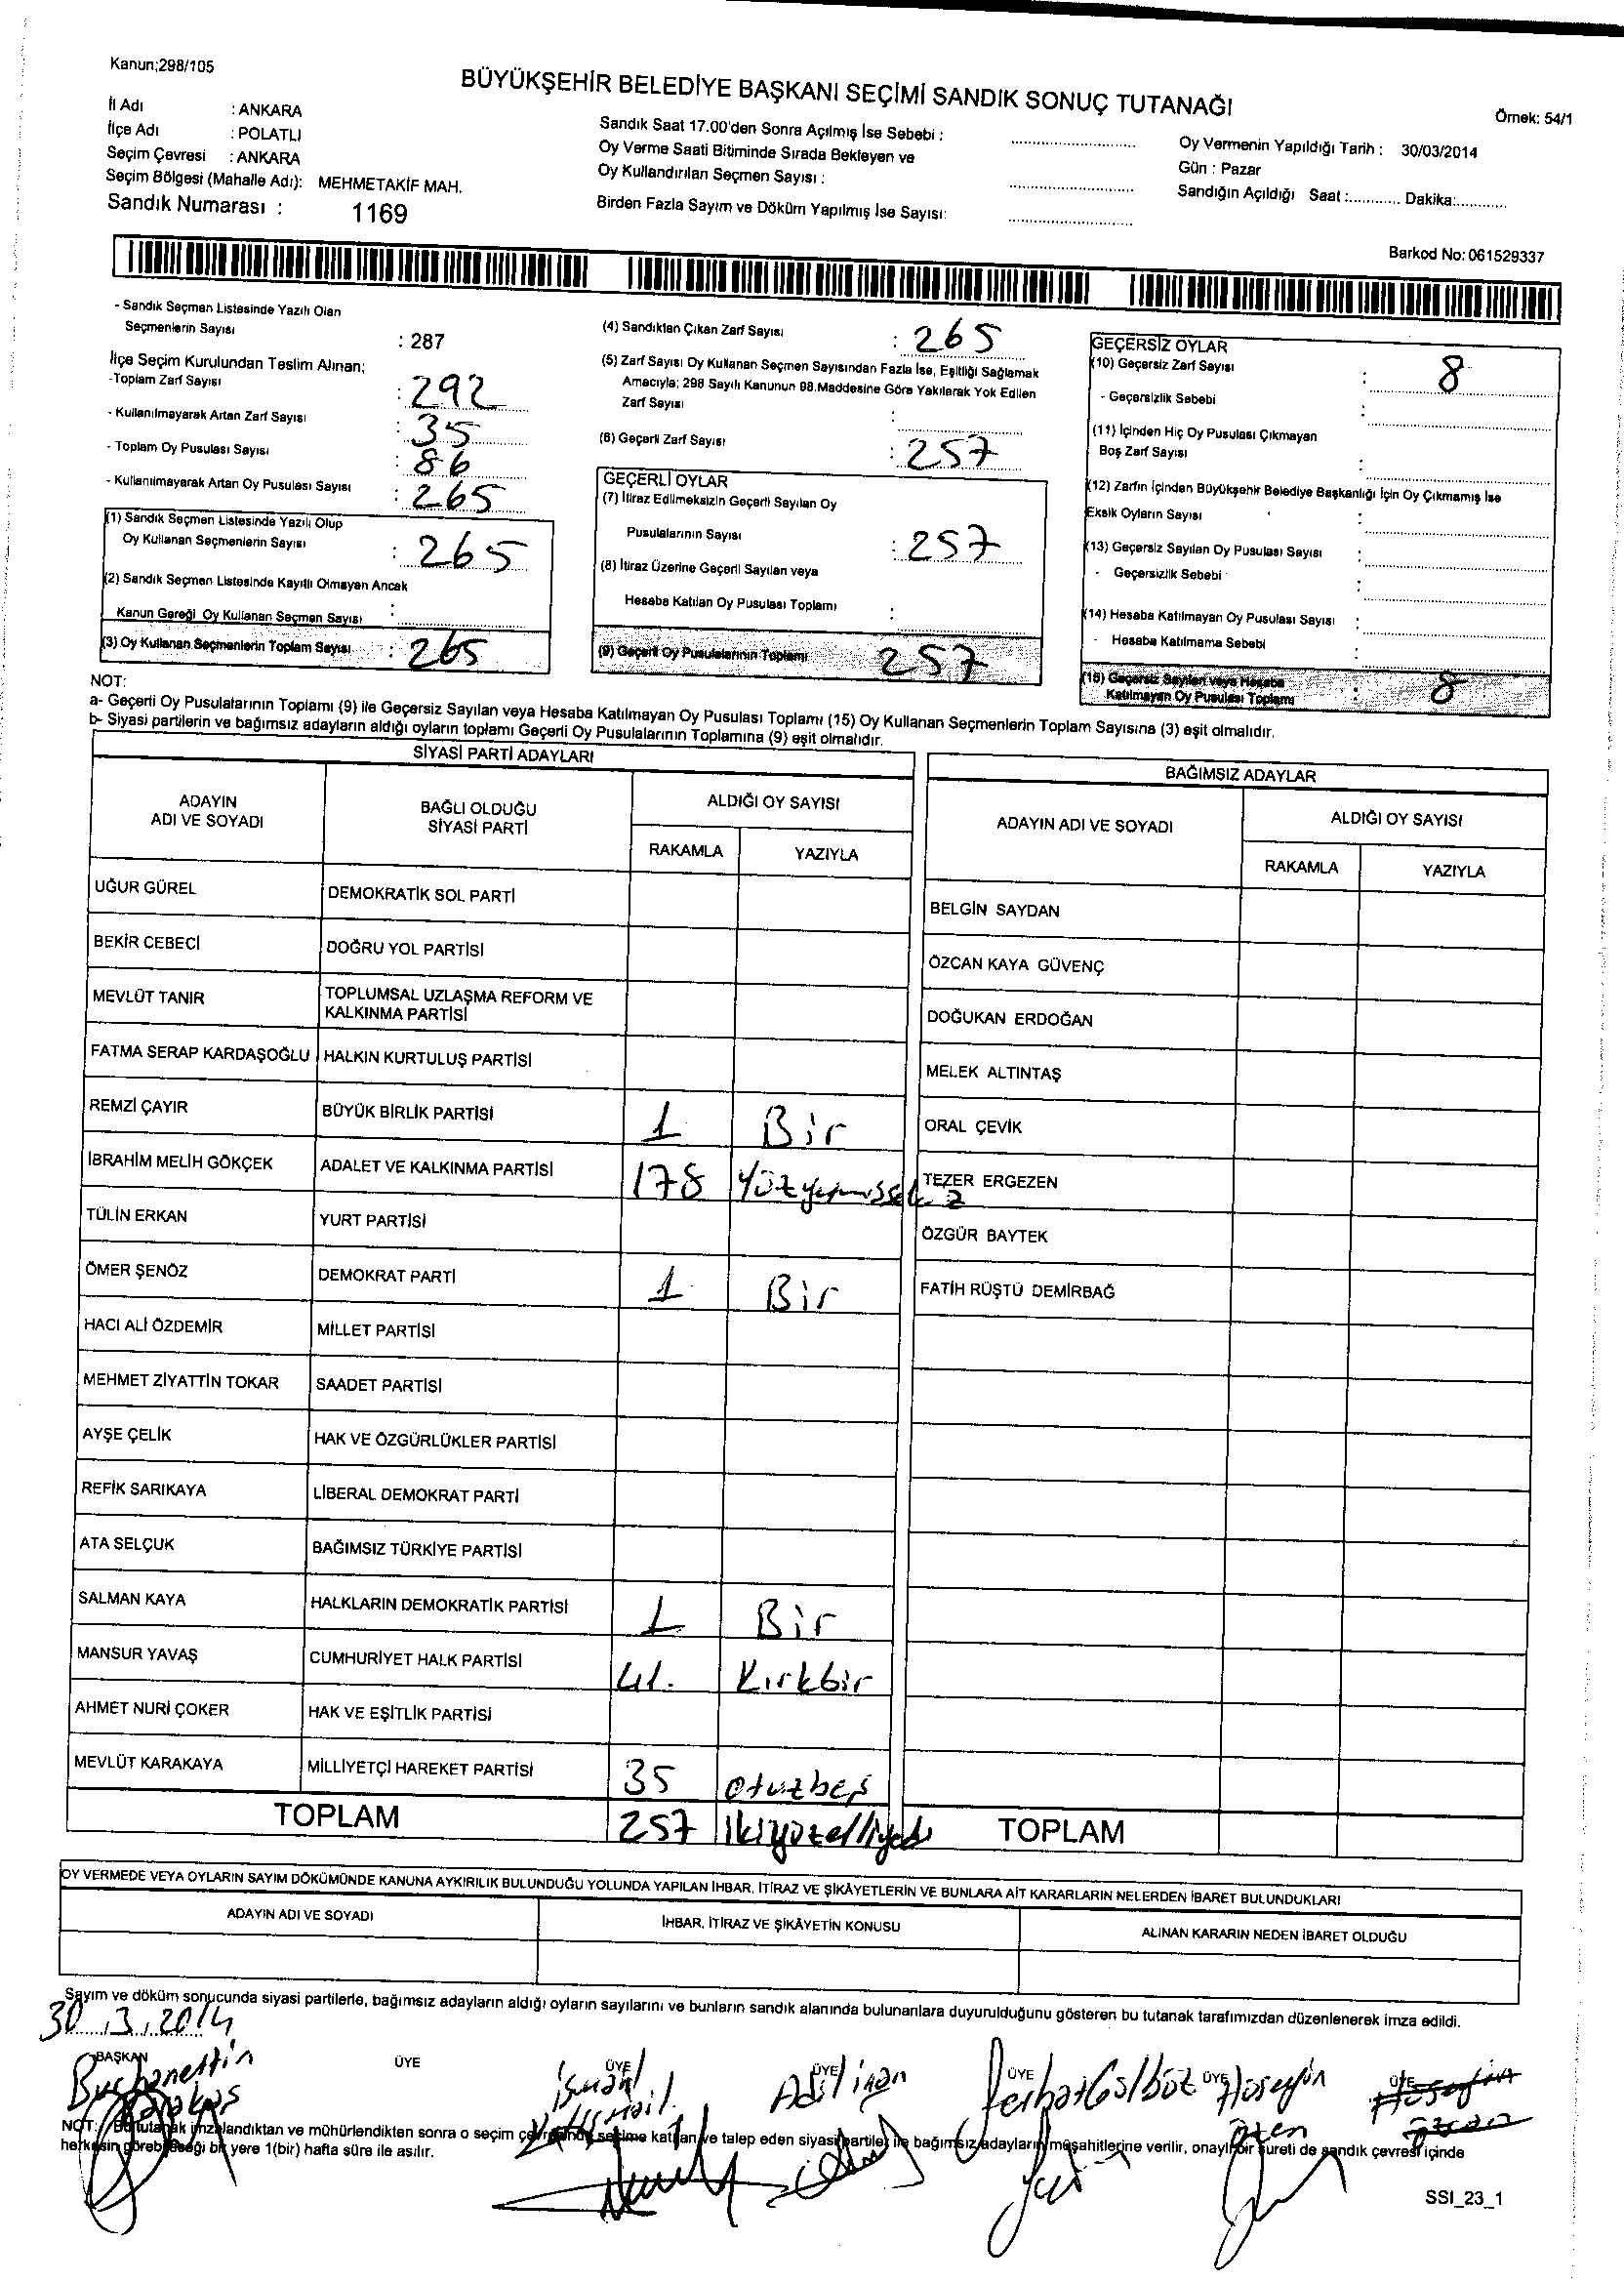 Kanun;298/105
BÜYÜKŞEHİR BELEDİYE BAŞKANI SEÇİMİ SANDIK SONUÇ TUTANAĞI
Örnek: 54/1
İl Adı : ANKARA
İlçe Adı : POLATLI
Seçim Çevresi : ANKARA
Seçim Bölgesi (Mahalle Adı): MEHMETAKİF MAH.
Sandık Numarası : 1169
Sandık Saat 17.00'den Sonra Açılmış İse Sebebi :
Oy Verme Saati Bitiminde Sırada Bekleyen ve
Oy Kullandırılan Seçmen Sayısı :
Birden Fazla Sayım ve Döküm Yapılmış İse Sayısı:
Oy Vermenin Yapıldığı Tarih : 30/03/2014
Gün : Pazar
Sandığın Açıldığı Saat :............ Dakika:............
Barkod No: 061529337
- Sandık Seçmen Listesinde Yazılı Olan
Seçmenlerin Sayısı : 287
İlçe Seçim Kurulundan Teslim Alınan;
-Toplam Zarf Sayısı : 292
- Kullanılmayarak Artan Zarf Sayısı : 35
- Toplam Oy Pusulası Sayısı : 86
- Kullanılmayarak Artan Oy Pusulası Sayısı : 265
(1) Sandık Seçmen Listesinde Yazılı Olup
Oy Kullanan Seçmenlerin Sayısı : 265
(2) Sandık Seçmen Listesinde Kayıtlı Olmayan Ancak
Kanun Gereği Oy Kullanan Seçmen Sayısı :
(3) Oy Kullanan Seçmenlerin Toplam Sayısı : 265
(4) Sandıktan Çıkan Zarf Sayısı : 265
(5) Zarf Sayısı Oy Kullanan Seçmen Sayısından Fazla İse, Eşitliği Sağlamak
Amacıyla; 298 Sayılı Kanunun 98.Maddesine Göre Yakılarak Yok Edilen
Zarf Sayısı :
(6) Geçerli Zarf Sayısı : 257
GEÇERLİ OYLAR
(7) İtiraz Edilmeksizin Geçerli Sayılan Oy
Pusulalarının Sayısı : 257
(8) İtiraz Üzerine Geçerli Sayılan veya
Hesaba Katılan Oy Pusulası Toplamı :
(9) Geçerli Oy Pusulalarının Toplamı 257
GEÇERSİZ OYLAR
(10) Geçersiz Zarf Sayısı : 8
- Geçersizlik Sebebi :
(11) İçinden Hiç Oy Pusulası Çıkmayan
Boş Zarf Sayısı :
(12) Zarfın İçinden Büyükşehir Belediye Başkanlığı İçin Oy Çıkmamış İse
Eksik Oyların Sayısı :
(13) Geçersiz Sayılan Oy Pusulası Sayısı :
- Geçersizlik Sebebi :
(14) Hesaba Katılmayan Oy Pusulası Sayısı :
- Hesaba Katılmama Sebebi :
(15) Geçersiz Sayılan veya Hesaba
Katılmayan Oy Pusulası Toplamı : 8
NOT:
a- Geçerli Oy Pusulalarının Toplamı (9) ile Geçersiz Sayılan veya Hesaba Katılmayan Oy Pusulası Toplamı (15) Oy Kullanan Seçmenlerin Toplam Sayısına (3) eşit olmalıdır.
b- Siyasi partilerin ve bağımsız adayların aldığı oyların toplamı Geçerli Oy Pusulalarının Toplamına (9) eşit olmalıdır.
SİYASİ PARTİ ADAYLARI
ADAYIN ADI VE SOYADI
BAĞLI OLDUĞU SİYASİ PARTİ
ALDIĞI OY SAYISI
RAKAMLA YAZIYLA
UĞUR GÜREL DEMOKRATİK SOL PARTİ
BEKİR CEBECİ DOĞRU YOL PARTİSİ
MEVLÜT TANIR TOPLUMSAL UZLAŞMA REFORM VE
KALKINMA PARTİSİ
FATMA SERAP KARDAŞOĞLU HALKIN KURTULUŞ PARTİSİ
REMZİ ÇAYIR BÜYÜK BİRLİK PARTİSİ 1 Bir
İBRAHİM MELİH GÖKÇEK ADALET VE KALKINMA PARTİSİ 178
TÜLİN ERKAN YURT PARTİSİ
ÖMER ŞENÖZ DEMOKRAT PARTİ 1 Bir
HACI ALİ ÖZDEMİR MİLLET PARTİSİ
MEHMET ZİYATTİN TOKAR SAADET PARTİSİ
AYŞE ÇELİK HAK VE ÖZGÜRLÜKLER PARTİSİ
REFİK SARIKAYA LİBERAL DEMOKRAT PARTİ
ATA SELÇUK BAĞIMSIZ TÜRKİYE PARTİSİ
SALMAN KAYA HALKLARIN DEMOKRATİK PARTİSİ 1 Bir
MANSUR YAVAŞ CUMHURİYET HALK PARTİSİ 41. Kırkbir
AHMET NURİ ÇOKER HAK VE EŞİTLİK PARTİSİ
MEVLÜT KARAKAYA MİLLİYETÇİ HAREKET PARTİSİ 35 otuzbeş
TOPLAM 257 ikiyüzelliyedi
BAĞIMSIZ ADAYLAR
ADAYIN ADI VE SOYADI
ALDIĞI OY SAYISI
RAKAMLA YAZIYLA
BELGİN SAYDAN
ÖZCAN KAYA GÜVENÇ
DOĞUKAN ERDOĞAN
MELEK ALTINTAŞ
ORAL ÇEVİK
TEZER ERGEZEN
ÖZGÜR BAYTEK
FATİH RÜŞTÜ DEMİRBAĞ
TOPLAM
OY VERMEDE VEYA OYLARIN SAYIM DÖKÜMÜNDE KANUNA AYKIRILIK BULUNDUĞU YOLUNDA YAPILAN İHBAR, İTİRAZ VE ŞİKÂYETLERİN VE BUNLARA AİT KARARLARIN NELERDEN İBARET BULUNDUKLARI
ADAYIN ADI VE SOYADI İHBAR, İTİRAZ VE ŞİKÂYETİN KONUSU ALINAN KARARIN NEDEN İBARET OLDUĞU
Sayım ve döküm sonucunda siyasi partilerle, bağımsız adayların aldığı oyların sayılarını ve bunların sandık alanında bulunanlara duyurulduğunu gösteren bu tutanak tarafımızdan düzenlenerek imza edildi.
30.3.2014
BAŞKAN ÜYE ÜYE ÜYE ÜYE ÜYE ÜYE
Burhanettin Adil inan Hüseyin
NOT: Bu tutanak imzalandıktan ve mühürlendikten sonra o seçim çevresinde seçime katılan ve talep eden siyasi partiler ile bağımsız adayların müşahitlerine verilir, onaylı bir sureti de sandık çevresi içinde
herkesin görebileceği bir yere 1(bir) hafta süre ile asılır.
SSI_23_1